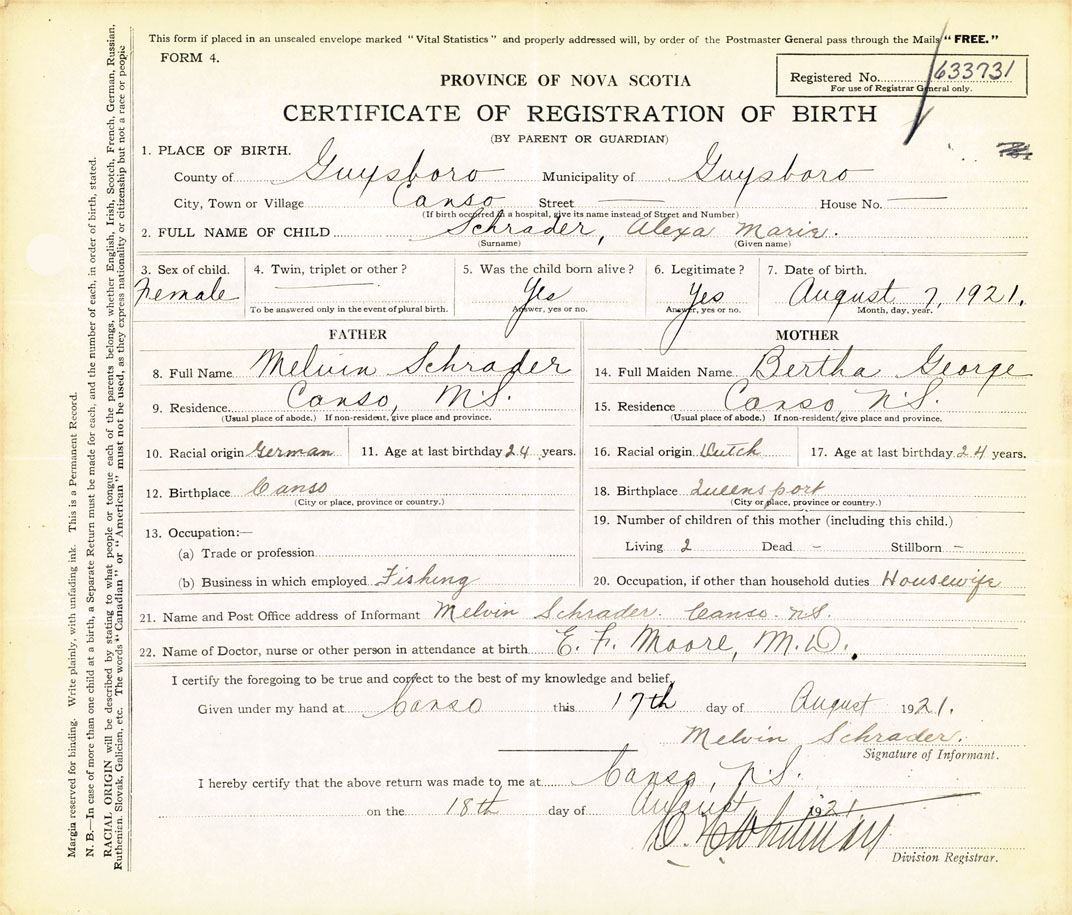 This form if placed in an unsealed envelope marked "Vital Statistics" and properly addressed will, by order of the Postmaster General pass through the Mails "FREE."
FORM 4.
Registered No. 633731
For use of Registrar General only.
PROVINCE OF NOVA SCOTIA
CERTIFICATE OF REGISTRATION OF BIRTH
(BY PARENT OR GUARDIAN)
1. PLACE OF BIRTH.
County of Guysboro Municipality of Guysboro
City, Town or Village Canso Street — House No. —
(If birth occurred in a hospital, give its name instead of Street and Number)
2. FULL NAME OF CHILD Schrader, Alexa Marie.
(Surname) (Given name)
3. Sex of child. 4. Twin, triplet or other? 5. Was the child born alive? 6. Legitimate? 7. Date of birth.
Female — Yes Yes August 7, 1921.
To be answered only in the event of plural birth. Answer, yes or no. Answer, yes or no. Month, day, year.
FATHER
8. Full Name Melvin Schrader
9. Residence Canso, N.S.
(Usual place of abode.) If non-resident, give place and province.
10. Racial origin German 11. Age at last birthday 24 years.
12. Birthplace Canso
(City or place, province or country.)
13. Occupation:—
(a) Trade or profession
(b) Business in which employed Fishing
MOTHER
14. Full Maiden Name Bertha George
15. Residence Canso, N.S.
(Usual place of abode.) If non-resident, give place and province.
16. Racial origin Dutch 17. Age at last birthday 24 years.
18. Birthplace Queensport
(City or place, province or country.)
19. Number of children of this mother (including this child.)
Living 2 Dead – Stillborn –
20. Occupation, if other than household duties Housewife
21. Name and Post Office address of Informant Melvin Schrader. Canso. N.S.
22. Name of Doctor, nurse or other person in attendance at birth E. F. Moore, M.D.
I certify the foregoing to be true and correct to the best of my knowledge and belief,
Given under my hand at Canso this 17th day of August 1921.
Melvin Schrader.
Signature of Informant.
I hereby certify that the above return was made to me at Canso, N.S.
on the 18th day of August 1921
Division Registrar.
Margin reserved for binding. Write plainly, with unfading ink. This is a Permanent Record.
N. B.—In case of more than one child at a birth, a Separate Return must be made for each, and the number of each, in order of birth, stated.
RACIAL ORIGIN will be described by stating to what people or tongue each of the parents belongs, whether English, Irish, Scotch, French, German, Russian,
Ruthenien, Slovak, Galician, etc. The words "Canadian" or "American" must not be used, as they express nationality or citizenship but not a race or people